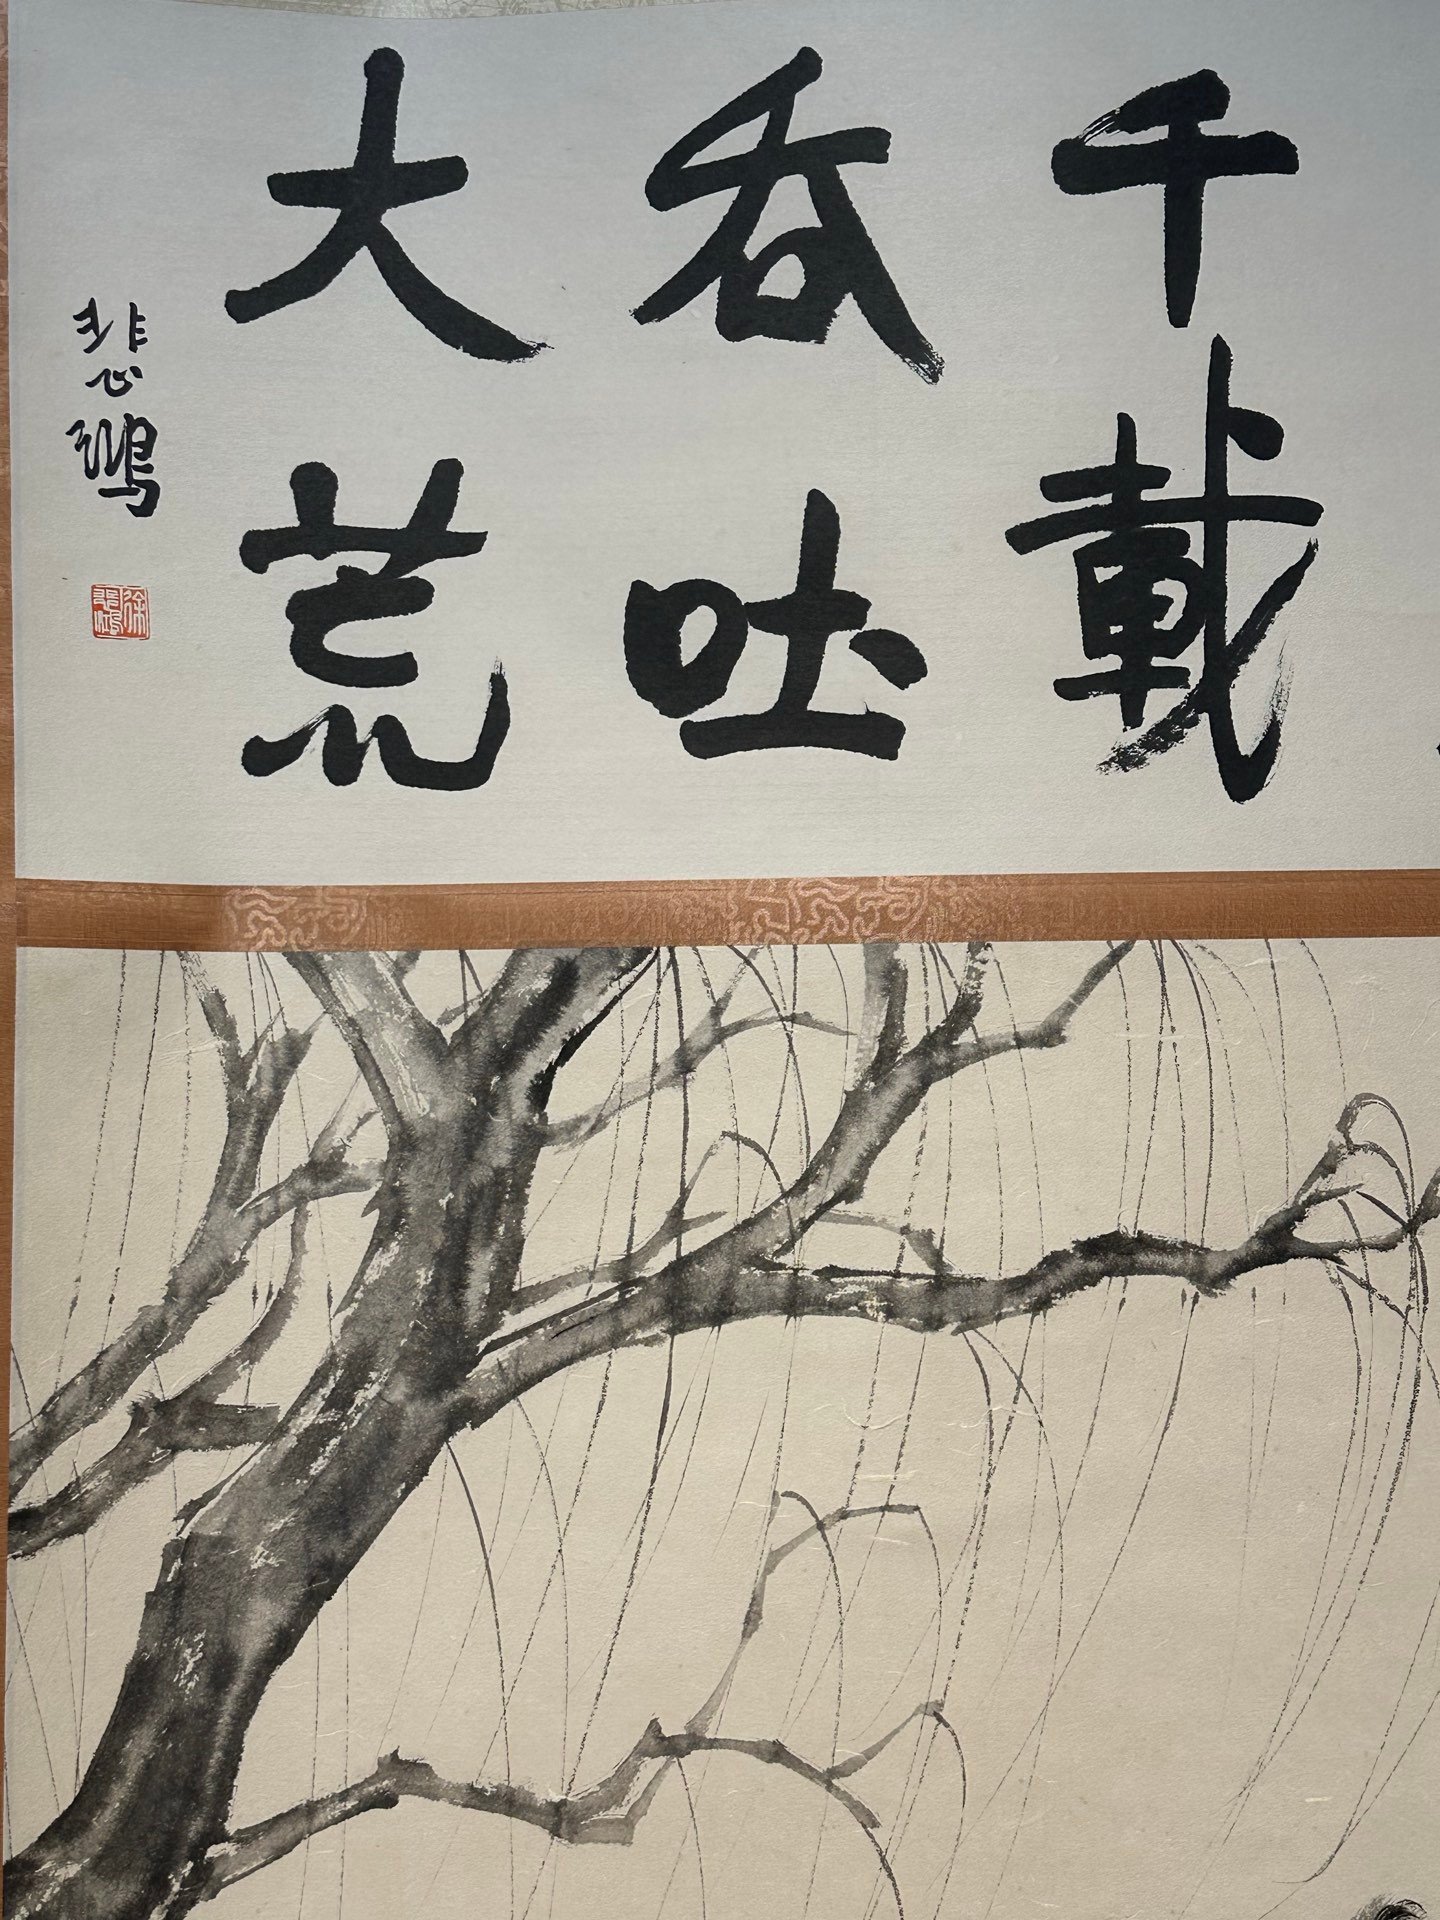 千載
吞吐
大荒
悲鴻
徐悲鴻